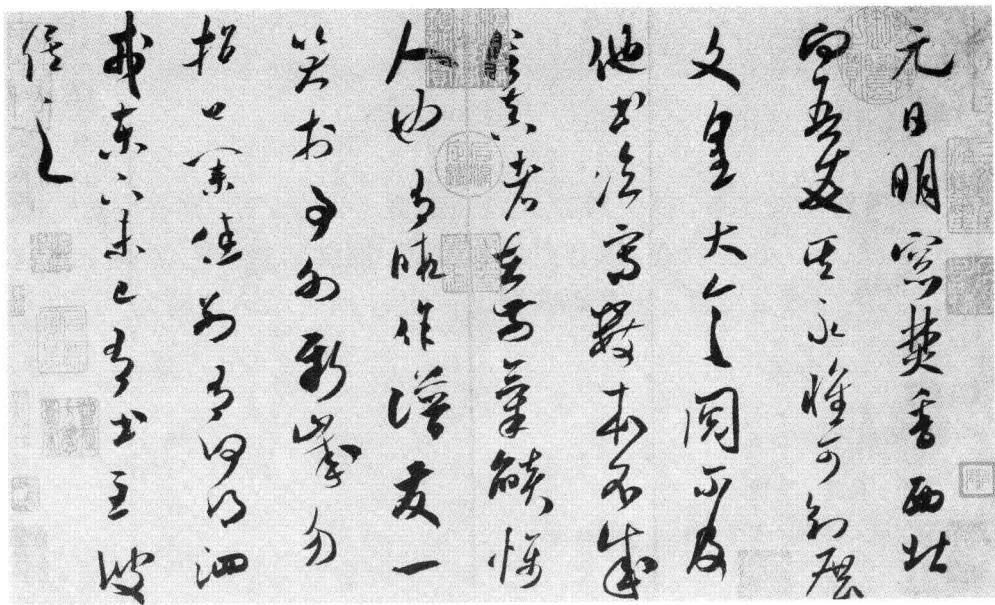 元日明窓焚香西北
向吾友其永懷可知展
文皇大令閱不及
他書臨寫數本不成
信真者在前氣焰懾
人也有暇作譜發一
笑於事外新歲勿
招口業佳別有何得泗
戎東下未已有書至彼
俟之